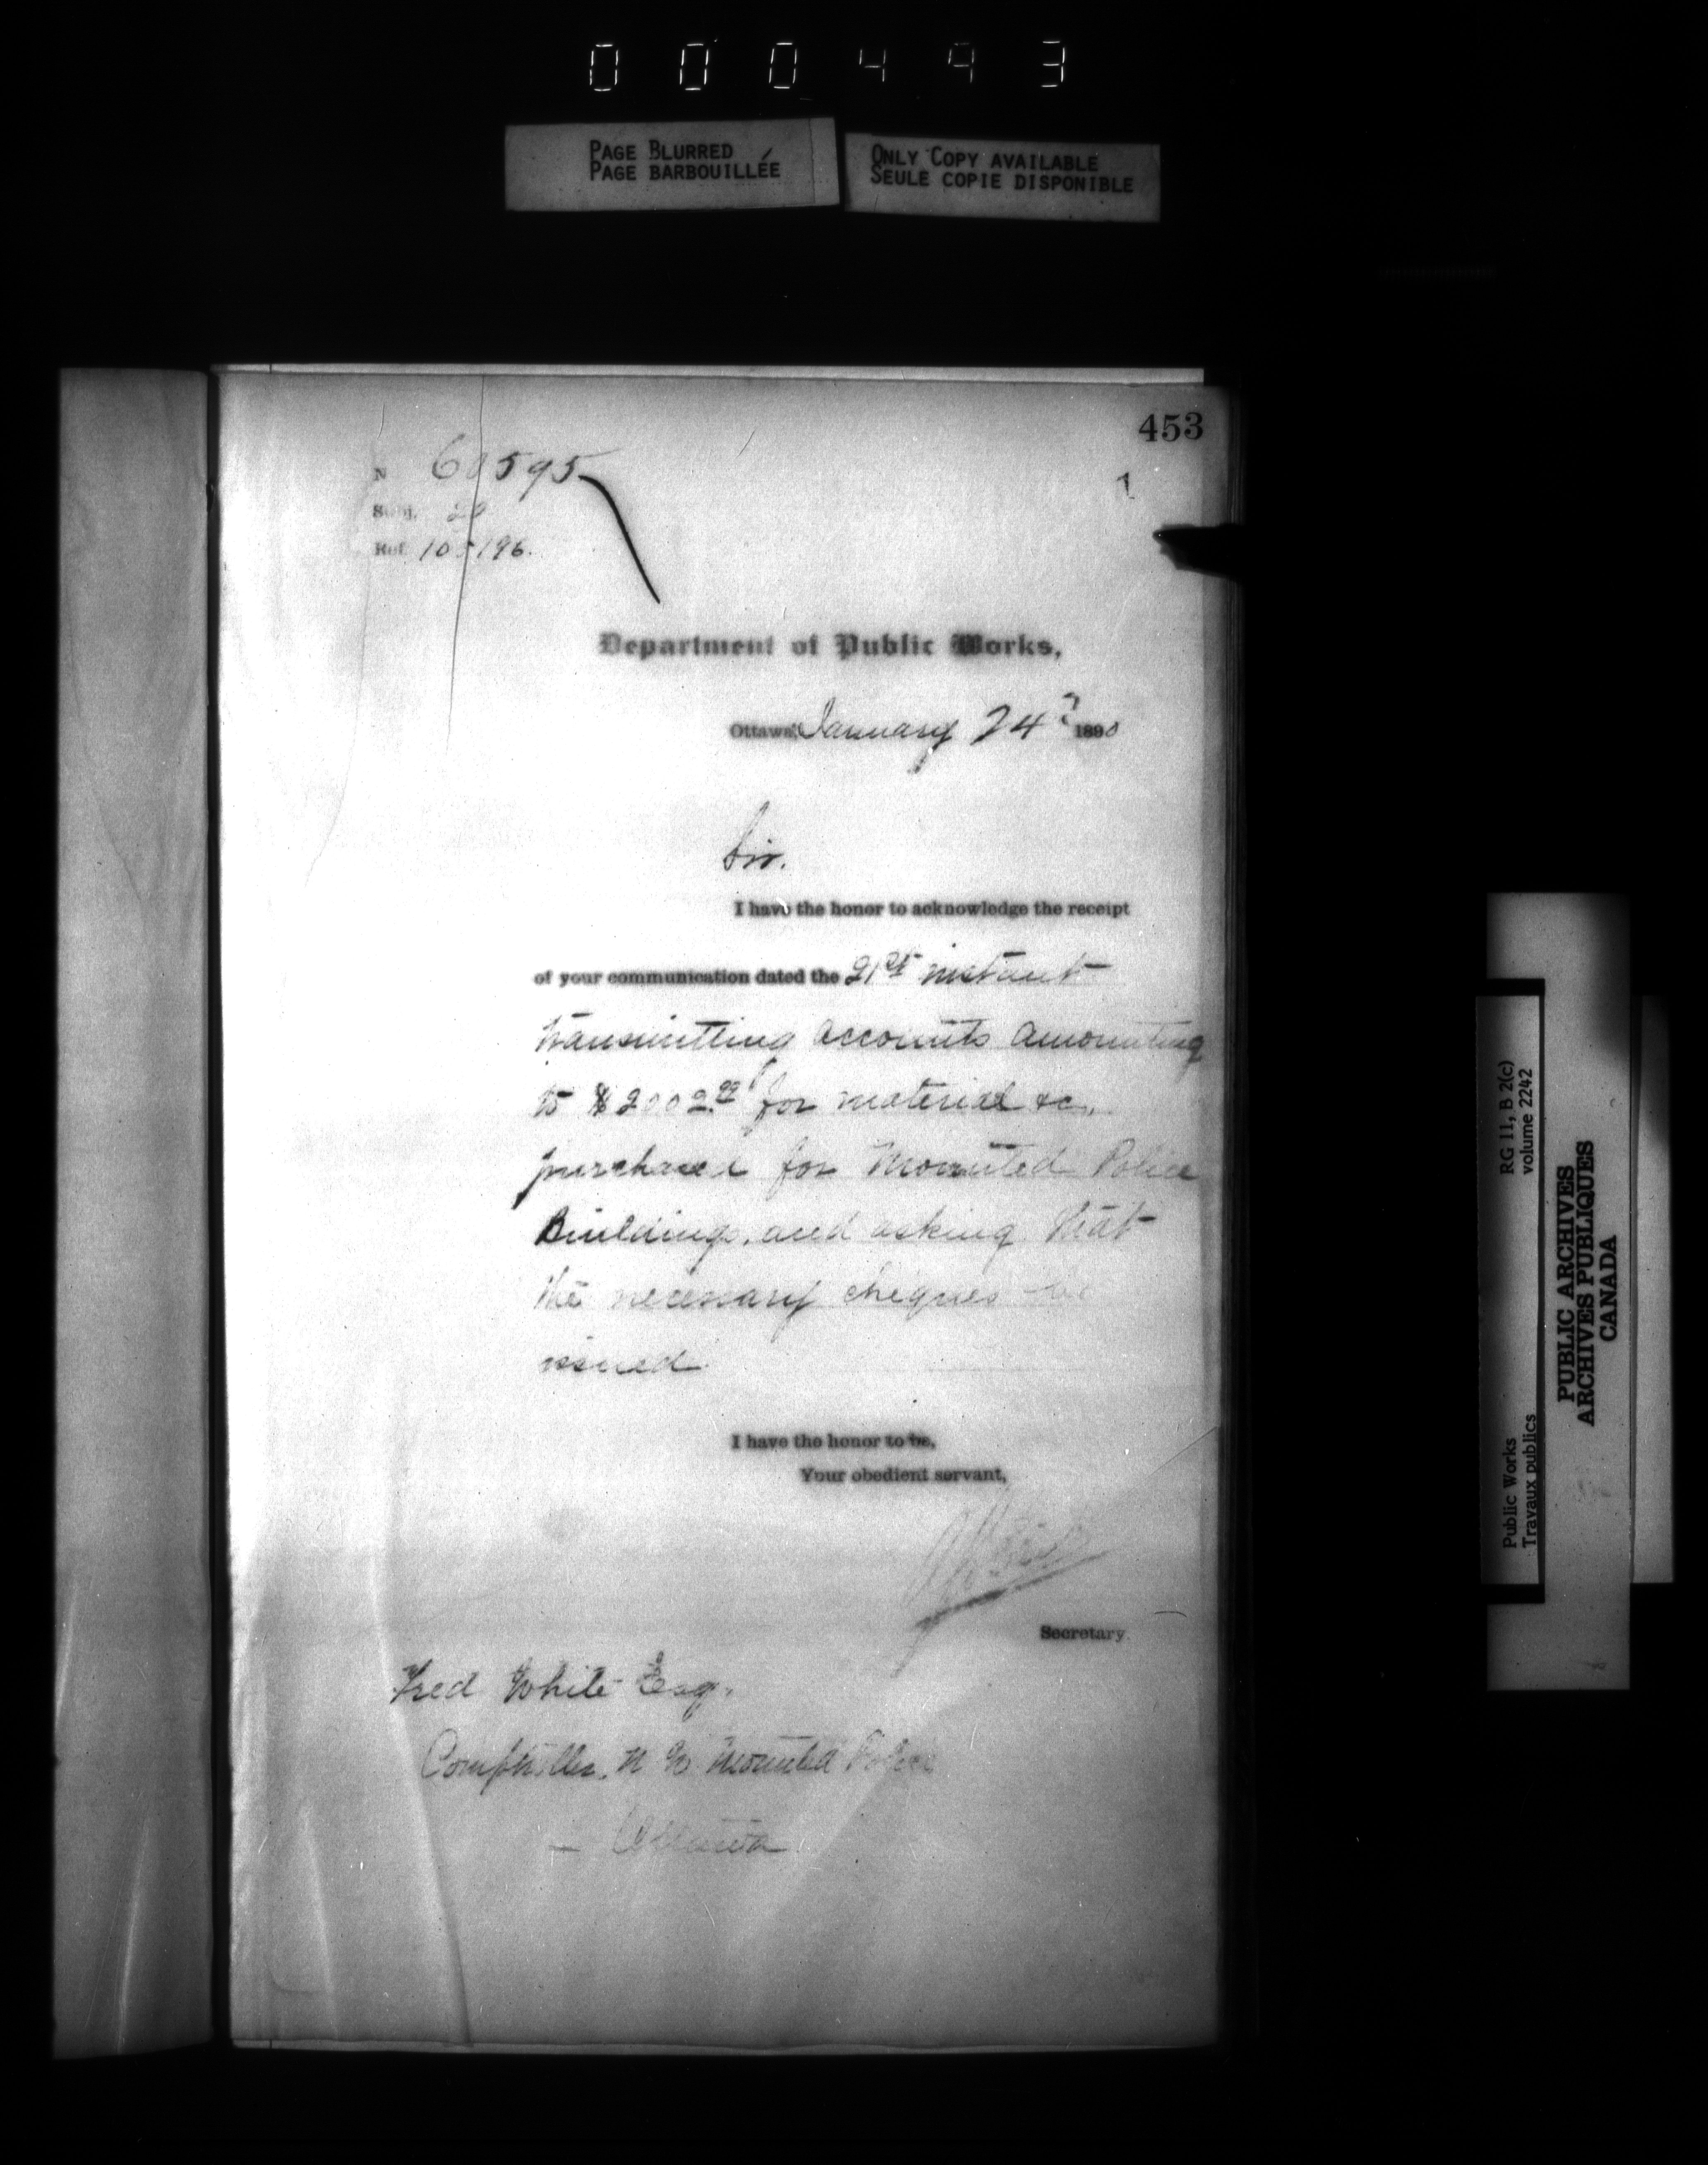 000493
PAGE BLURRED
PAGE BARBOUILLÉE
ONLY COPY AVAILABLE
SEULE COPIE DISPONIBLE
453
1
N 60595
Subj. 20
Ref. 105196.
Department of Public Works,
Ottawa, January 24 1890
Sir.
I have the honor to acknowledge the receipt
of your communication dated the 21st instant
transmitting accounts amounting
to $2002.99 for material &c.,
purchased for Mounted Police
Buildings, and asking that
the necessary cheques be
issued.
I have the honor to be,
Your obedient servant,
Secretary.
Fred White Esq.
Comptroller, N W Mounted Police
— Ottawa
RG 11, B 2(c)
volume 2242
Public Works
Travaux publics
PUBLIC ARCHIVES
ARCHIVES PUBLIQUES
CANADA